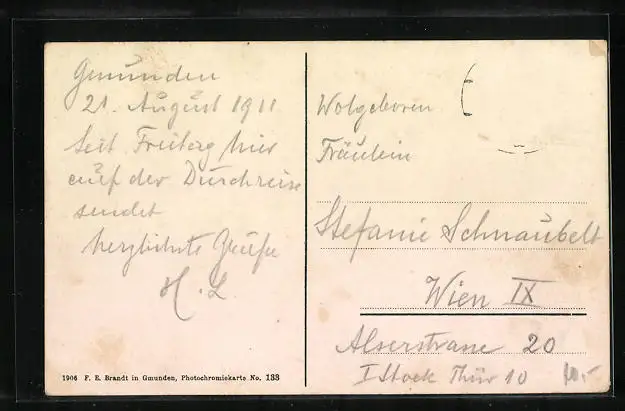 Gmunden
21. August 1911
Seit Freitag hier
auf der Durchreise
sendet
herzlichste Grüße
H. L.
1906 F. E. Brandt in Gmunden, Photochromiekarte No. 133
Wolgeboren
Fräulein
Stefanie Schnaubelt
Wien IX
Alserstrasse 20
I Stock Thür 10